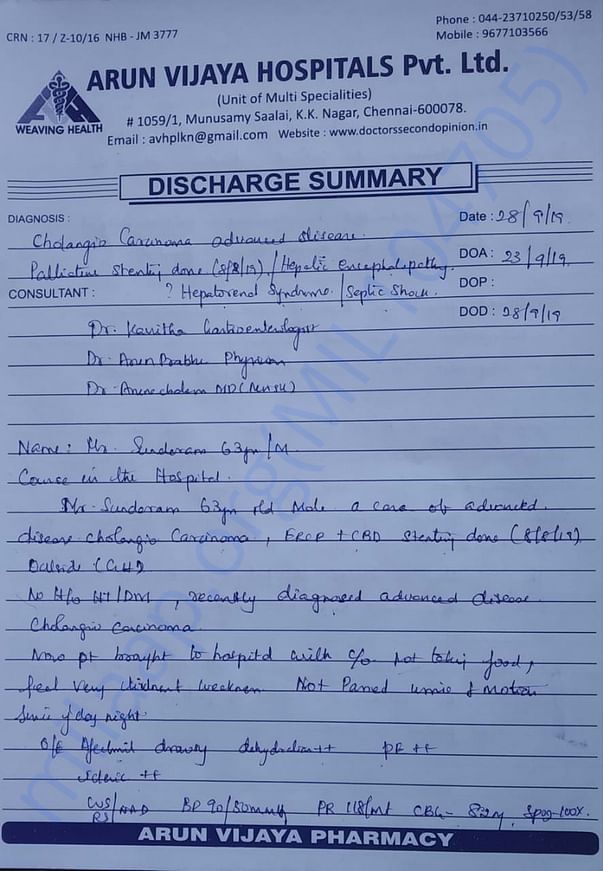 CRN : 17 / Z-10/16 NHB - JM 3777
Phone : 044-23710250/53/58
Mobile : 9677103566
ARUN VIJAYA HOSPITALS Pvt. Ltd.
(Unit of Multi Specialities)
# 1059/1, Munusamy Saalai, K.K. Nagar, Chennai-600078.
Email : avhplkn@gmail.com Website : www.doctorssecondopinion.in
WEAVING HEALTH
DISCHARGE SUMMARY
DIAGNOSIS :
Date : 28/9/19.
Cholangio Carcinoma advanced disease.
DOA : 23/9/19.
Palliative Stenting done (8/8/19) / Hepatic encephalopathy.
CONSULTANT : ? Hepatorenal Syndrome. / Septic Shock.
DOP :
DOD : 28/9/19
Dr. Kavitha Gastroenterologist
Dr. Arun Prabhu Physician
Dr. Arunachalam MD
Name : Mr. Sundaram 63yr/M.
Course in the Hospital.
Mr. Sundaram 63yr old Male a case of advanced
disease cholangio Carcinoma, ERCP + CBD Stenting done (8/8/19)
Outside
No H/o HT/DM, recently diagnosed advanced disease
Cholangio Carcinoma.
Now pt brought to hospital with c/o not taking food,
feel very weakness Not Passed urine & motion
Since y'day night.
O/E Afebrile drowsy dehydration++ PE ++
icteric ++
CVS/RS/NAD BP 90/50mmHg PR 118/mt CBG- SPO2-100%.
ARUN VIJAYA PHARMACY